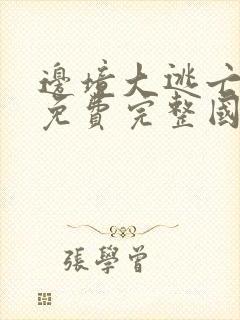 邊境大逃亡
免費完整國
張學曾